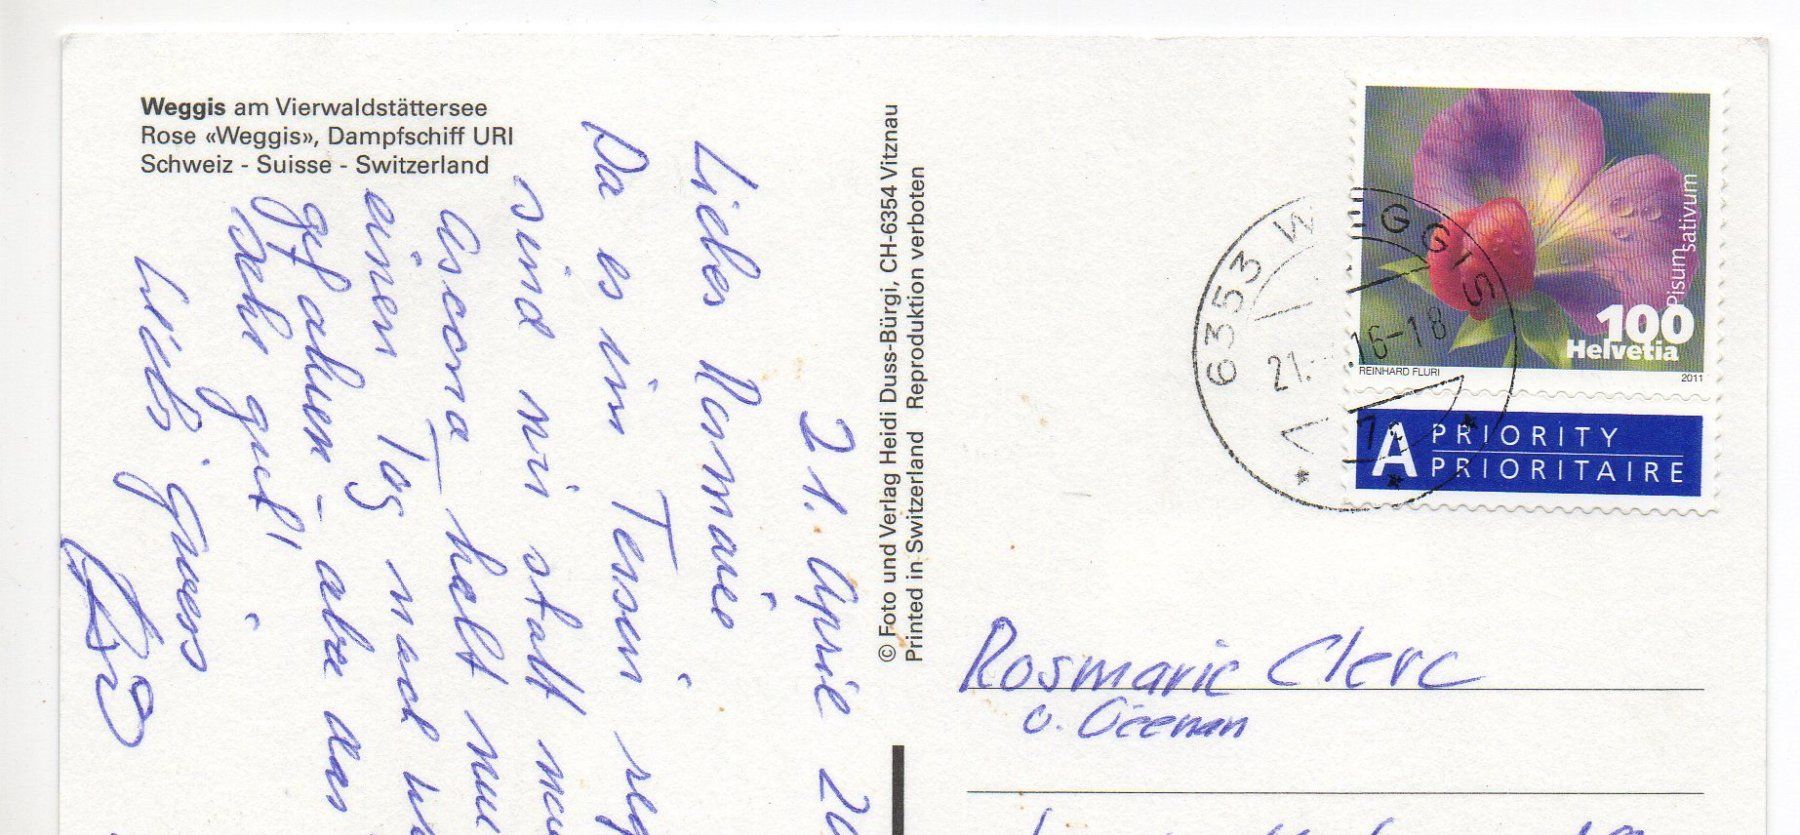 Weggis am Vierwaldstättersee
Rose «Weggis», Dampfschiff URI
Schweiz - Suisse - Switzerland
21. April 20
Liebes Rosmarie
Da es im Tessin reg
sind wir statt na
Ascona halt nu
einen Tag nach W
gfahren - aber das
sehr gut!
Liebi Gruess
© Foto und Verlag Heidi Duss-Bürgi, CH-6354 Vitznau
Printed in Switzerland Reproduktion verboten
Pisum sativum
100
Helvetia
REINHARD FLURI
2011
6353 WEGGIS
21. 16-18
A PRIORITY
PRIORITAIRE
Rosmarie Clerc